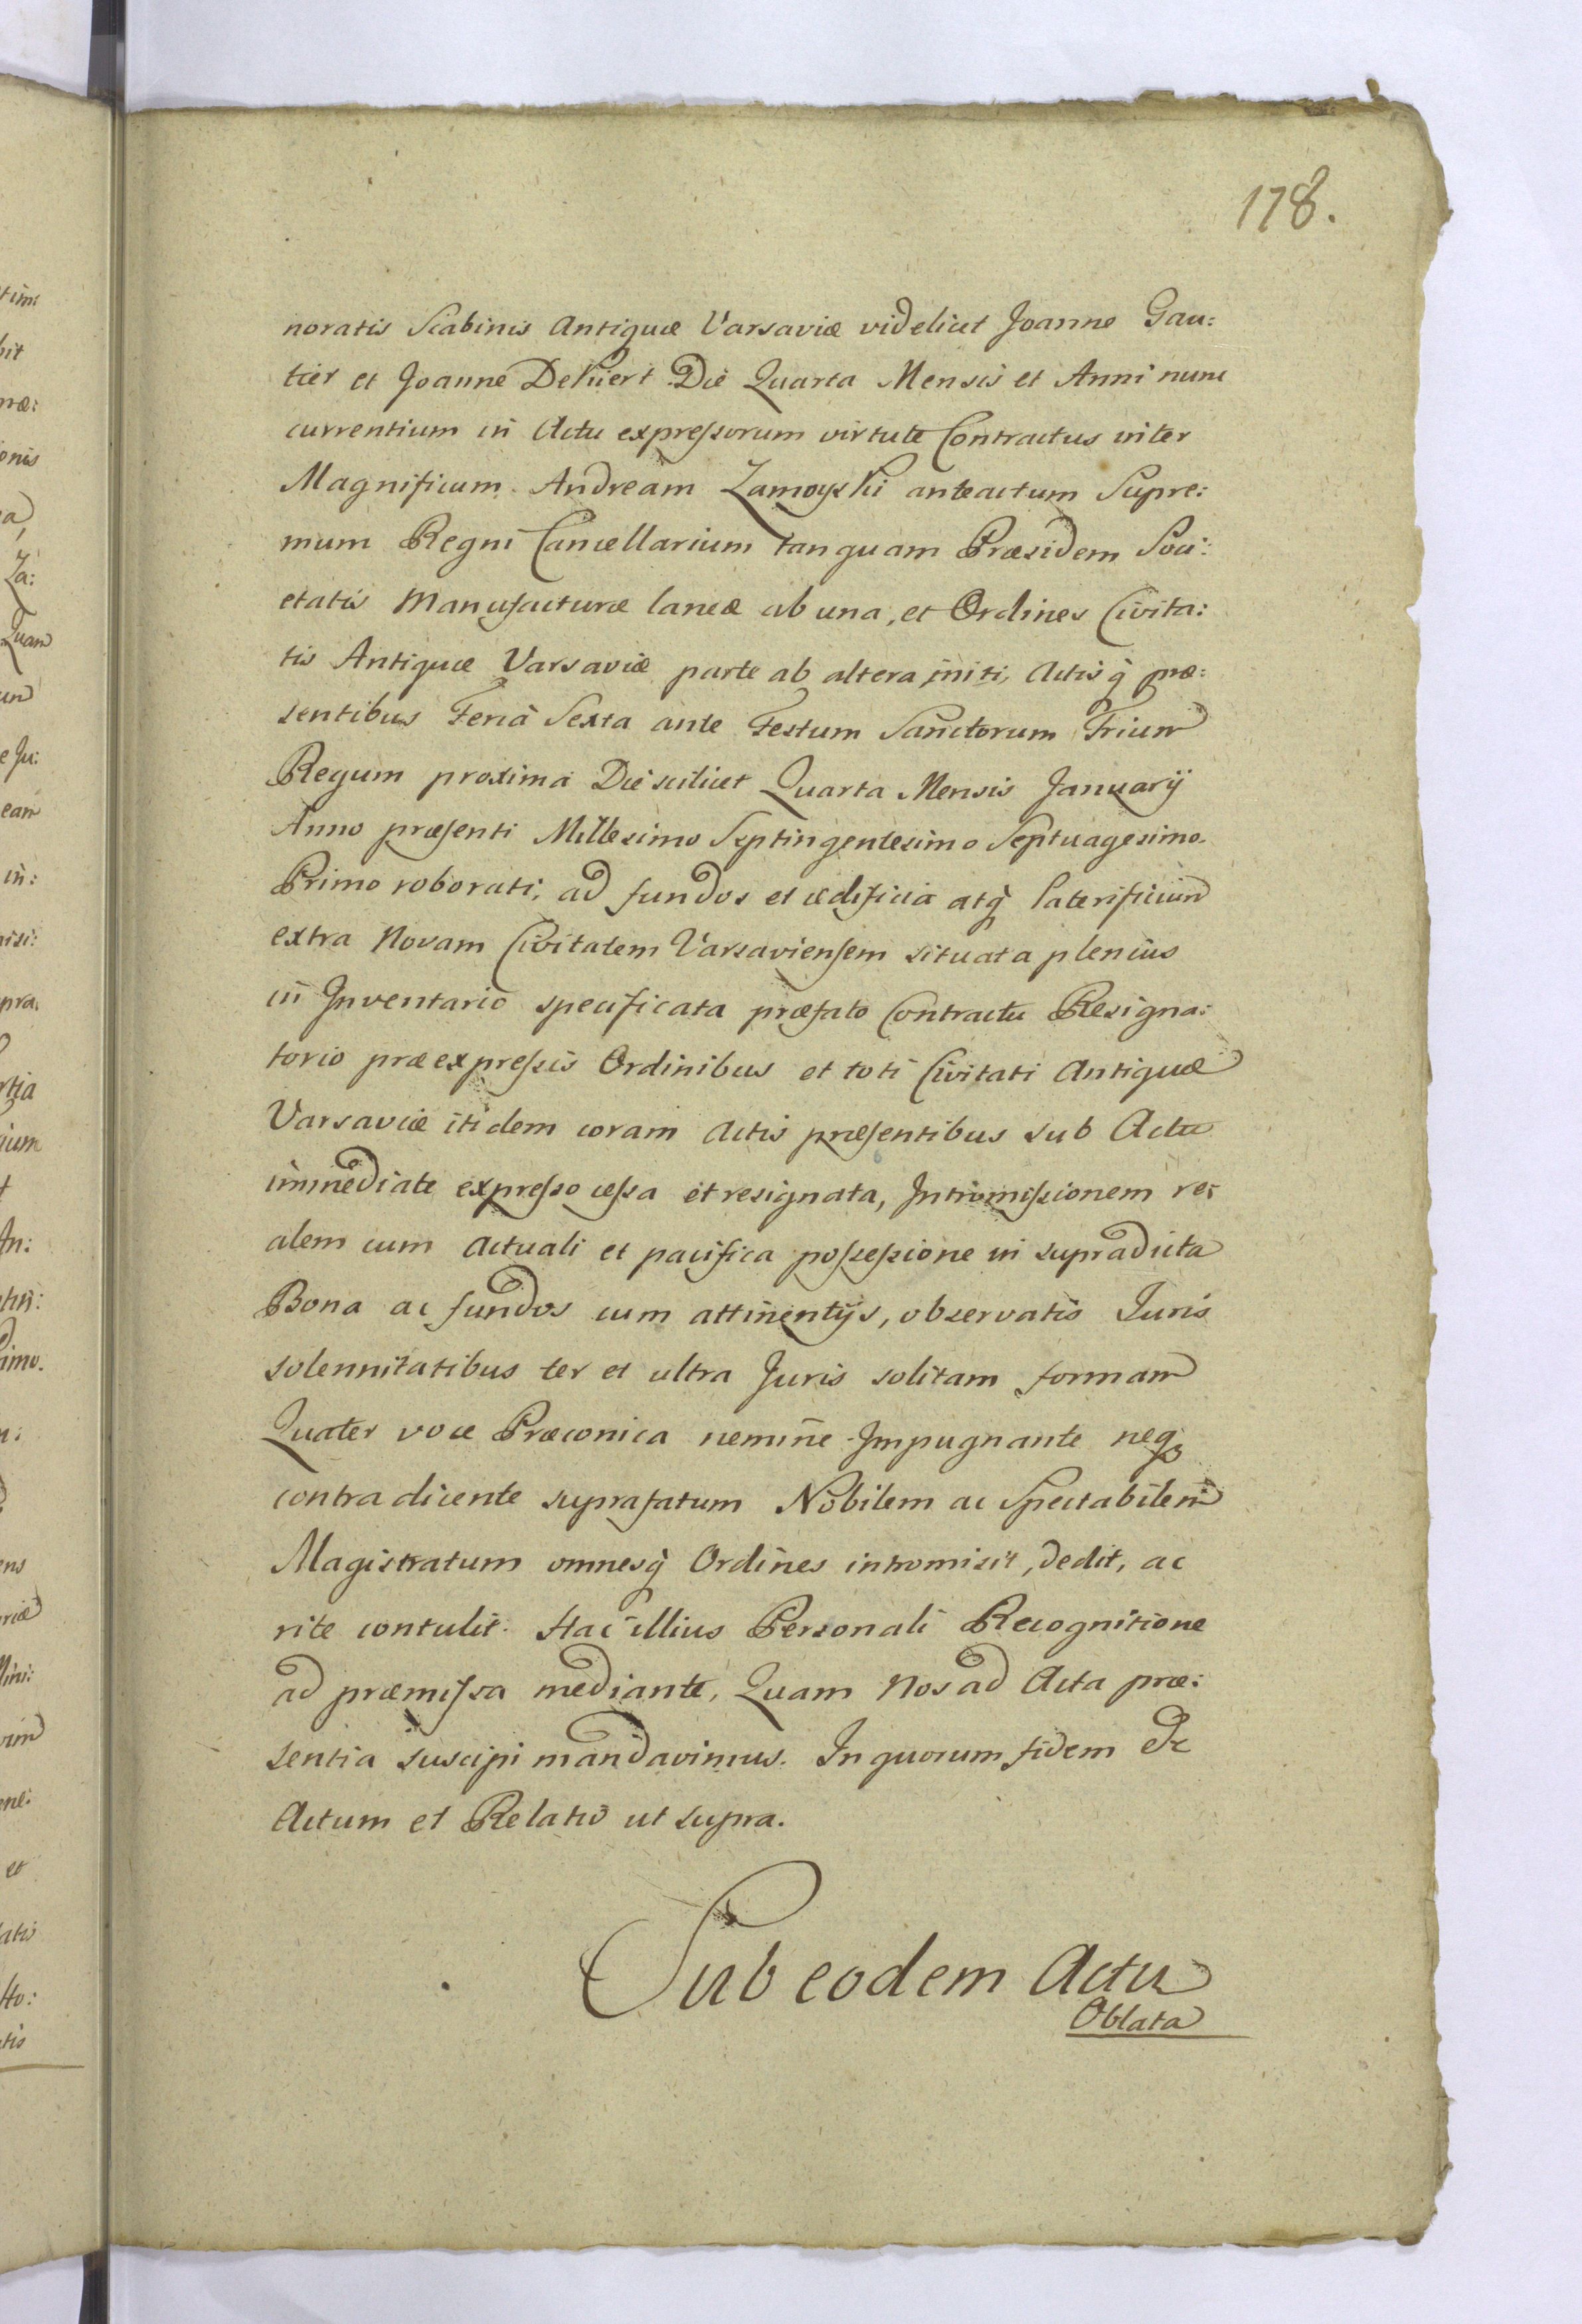 178.
noratis Scabinis Antiquæ Varsaviæ videlicet Joanne Gau:
tier et Joanne Dekiert Die Quarta Mensis et Anni nunc
currentium in Actu expreſsorum virtute Contractus inter
Magnificum Andream Zamoyski anteactum Supre:
mum Regni Cancellarium tanquam Præsidem Soci:
etatis Manufacturæ laneæ ab una, et Ordines Civita:
tis Antiquæ Varsaviæ parte ab altera initi, Actisq̀ præ:
sentibus Feriâ Sexta ante Festum Sanctorum Trium
Regum proxima Die scilicet Quarta Mensis Januarij
Anno præsenti Millesimo Septingentesimo Septuagesimo
Primo roborati, ad fundos et ædificia atq̀ laterificium
extra Novam Civitatem Varsavienſem situata plenius
in Inventario specificata præfato Contractu Resigna:
torio præexpreſsis Ordinibus et toti Civitati Antiquæ
Varsaviæ itidem coram Actis præſentibus sub Actu
immediate expreſso ceſsa et resignata, Intromiſsionem re:
alem cum Actuali et pacifica poſseſsione in supradicta
Bona ac fundos cum attinentijs, observatis Juris
solennitatibus ter et ultra Juris solitam formam
Quater voce Præconica nemine Impugnante neqꝫ
contradicente suprafatum Nobilem ac Spectabilem
Magistratum omnesq̀ Ordines intromisit, dedit, ac
rite contulit. Hac illius Personali Recognitione
ad præmiſsa mediante, Quam Nos ad Acta præ:
sentia suscipi mandavimus. In quorum fidem &c
Actum et Relatio ut supra.
Sub eodem Actu
Oblata